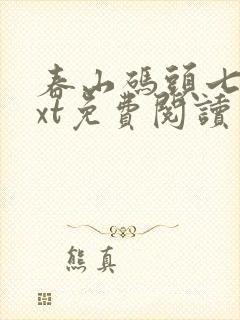 春山碼頭七
xt免費閱讀
熊真